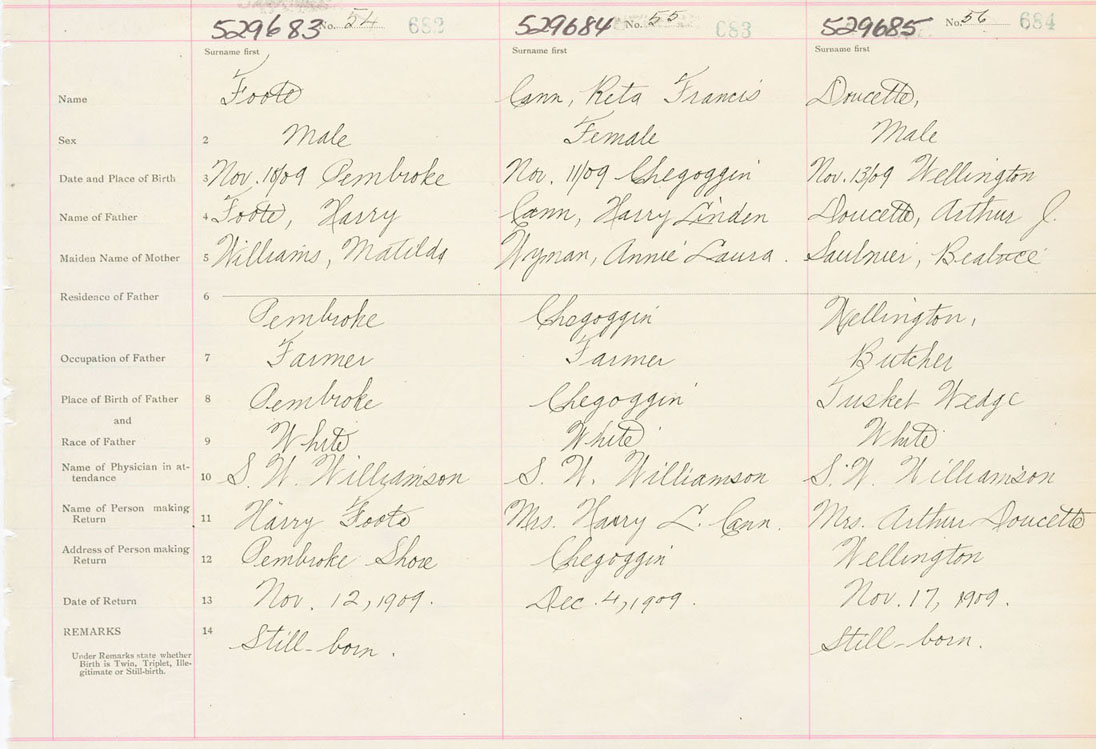 529683 No. 54 682 529684 No. 55 683 529685 No. 56 684
Surname first Surname first Surname first
Name Foote Cann, Reta Francis Doucette,
Sex 2 Male Female Male
Date and Place of Birth 3 Nov. 10/09 Pembroke Nov. 11/09 Chegoggin Nov. 13/09 Wellington
Name of Father 4 Foote, Harry Cann, Harry Linden Doucette, Arthur J.
Maiden Name of Mother 5 Williams, Matilda Wyman, Annie Laura. Saulnier, Beatrice
Residence of Father 6
Pembroke Chegoggin Wellington,
Occupation of Father 7 Farmer Farmer Butcher
Place of Birth of Father 8 Pembroke Chegoggin Tusket Wedge
and
Race of Father 9 White White White
Name of Physician in at-
tendance 10 S. W. Williamson S. W. Williamson S. W. Williamson
Name of Person making
Return 11 Harry Foote Mrs. Harry L. Cann. Mrs. Arthur Doucette
Address of Person making
Return 12 Pembroke Shore Chegoggin Wellington
Date of Return 13 Nov. 12, 1909. Dec. 4, 1909. Nov. 17, 1909.
REMARKS 14 Still-born. Still-born.
Under Remarks state whether
Birth is Twin, Triplet, Ille-
gitimate or Still-birth.